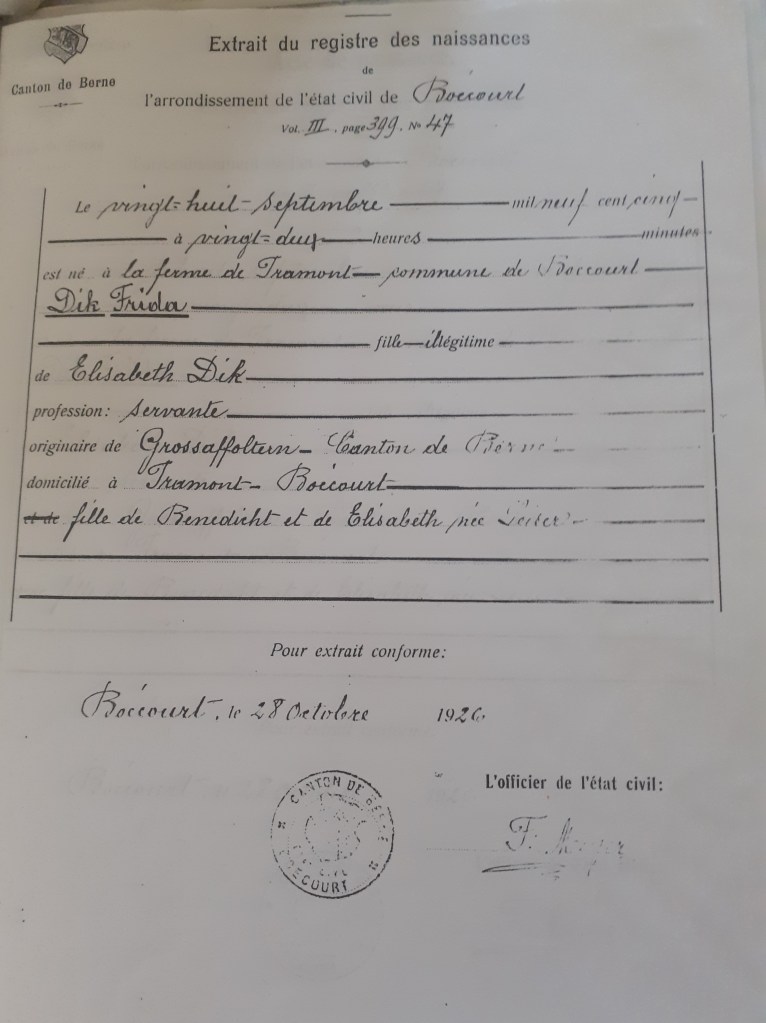 Extrait du registre des naissances
Canton de Berne
de
l'arrondissement de l'état civil de Boécourt
Vol. III, page 399. No 47
Le vingt=huit septembre mil neuf cent cinq
à vingt=deux heures minutes
est né à la ferme de Tramont commune de Boécourt
Dik Frida
fille illégitime
de Elisabeth Dik
profession: servante
originaire de Grossaffoltern - Canton de Berne
domicilié à Tramont - Boécourt
et de fille de Benedicht et de Elisabeth née
Pour extrait conforme:
Boécourt, le 28 Octobre 1926
L'officier de l'état civil:
CANTON DE BERNE
BOÉCOURT
F.